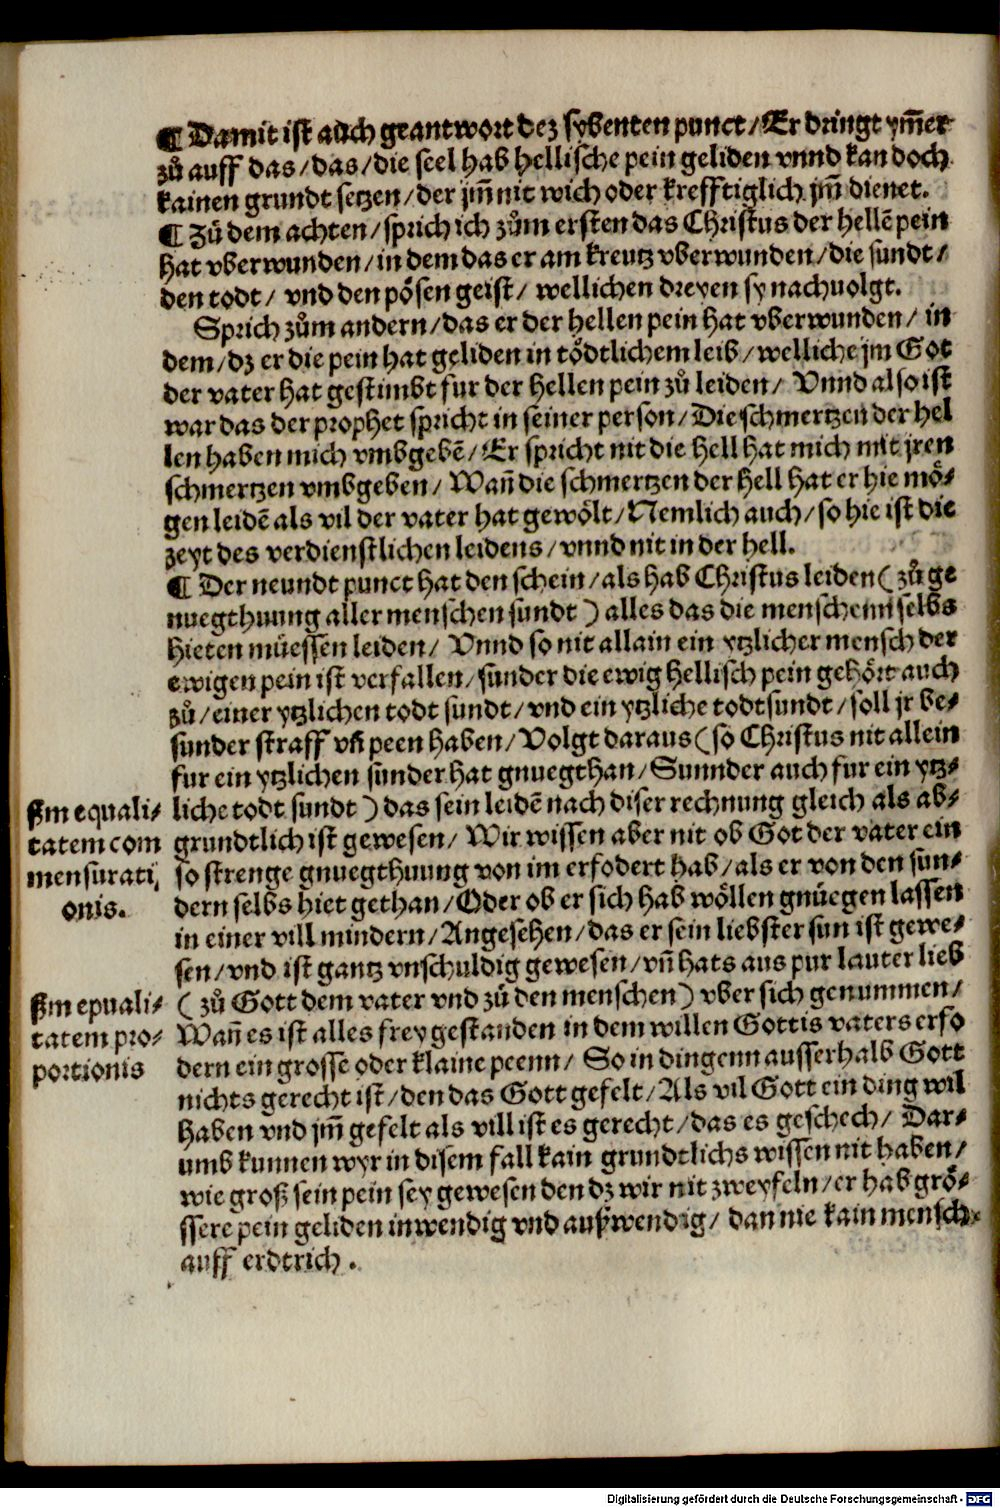 ¶ Damit ist auch geantwort dez sybenten punct / Er dringt ym̃er
zů auff das / das / die seel hab hellische pein geliden vnnd kan doch
kainen grundt setzen / der jm̃ nit wich oder krefftiglich jm̃ dienet.
¶ Zů dem achten / sprich ich zům ersten das Christus der hellẽ pein
hat vberwunden / in dem das er am kreutz vberwunden / die sundt /
den todt / vnd den pösen geist / wellichen dreyen sy nachuolgt.
Sprich zům andern / das er der hellen pein hat vberwunden / in
dem / dz er die pein hat geliden in tödtlichem leib / welliche jm Got
der vater hat gestimbt fur der hellen pein zů leiden / Vnnd also ist
war das der prophet spricht in seiner person / Die schmertzen der hel
len haben mich vmbgebẽ / Er spricht nit die hell hat mich mit jren
schmertzen vmbgeben / Wañ die schmertzen der hell hat er hie mö⸗
gen leidẽ als vil der vater hat gewölt / Nemlich auch / so hie ist die
zeyt des verdienstlichen leidens / vnnd nit in der hell.
¶ Der neundt punct hat den schein / als hab Christus leiden ( zů ge
nuegthuung aller menschen sundt ) alles das die menschenn selbs
hieten müessen leiden / Vnnd so nit allain ein ytzlicher mensch der
ewigen pein ist verfallen / sunder die ewig hellisch pein gehört auch
zů / einer ytzlichen todt sundt / vnd ein ytzliche todtsundt / soll jr be⸗
sunder straff vñ peen haben / Volgt daraus ( so Christus nit allein
fur ein ytzlichen sunder hat gnuegthan / Sunnder auch fur ein ytz⸗
liche todt sundt ) das sein leidẽ nach diser rechnung gleich als ab⸗
grundtlich ist gewesen / Wir wissen aber nit ob Got der vater ein
so strenge gnuegthuung von im erfodert hab / als er von den sun⸗
dern selbs hiet gethan / Oder ob er sich hab wöllen gnüegen lassen
in einer vill mindern / Angesehen / das er sein liebster sun ist gewe⸗
sen / vnd ist gantz vnschuldig gewesen / vñ hats aus pur lauter lieb
( zů Gott dem vater vnd zů den menschen ) vber sich genummen /
Wañ es ist alles frey gestanden in dem willen Gottis vaters erfo
dern ein grosse oder klaine peenn / So in dingenn ausserhalb Gott
nichts gerecht ist / den das Gott gefelt / Als vil Gott ein ding wil
haben vnd jm̃ gefelt als vill ist es gerecht / das es geschech / Dar⸗
umb kunnen wyr in disem fall kain grundtlichs wissen nit haben /
wie groß sein pein sey gewesen den dz wir nit zweyfeln / er hab grö⸗
ssere pein geliden inwendig vnd außwendig / dan nie kain mensch
auff erdtrich .
Fm equali⸗
tatem com
mensurati
onis.
Fm epuali⸗
tatem pro⸗
portionis
Digitalisierung gefördert durch die Deutsche Forschungsgemeinschaft - DFG